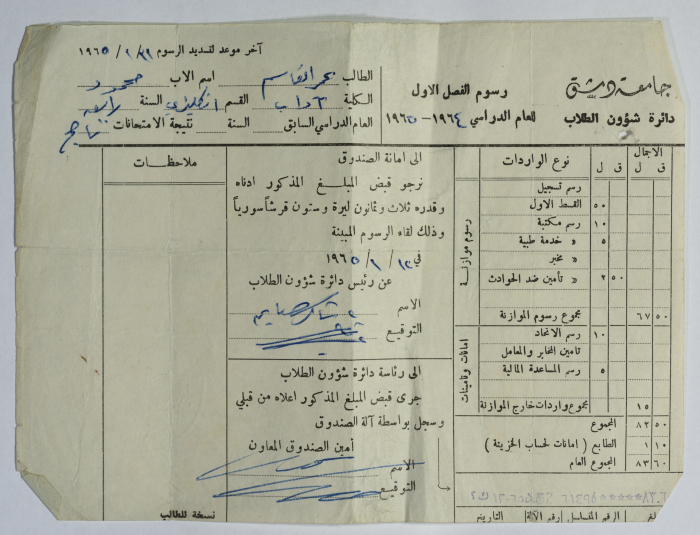 آخر موعد لتسديد الرسوم ٣١ / ١ / ١٩٦٥
جامعة دمشق
دائرة شؤون الطلاب
رسوم الفصل الاول
للعام الدراسي ١٩٦٤ - ١٩٦٥
الطالب عمر القاسم اسم الاب محمود
الكلية آداب القسم انكليزي السنة رابعة
العام الدراسي السابق السنة نتيجة الامتحانات ناجح
الاجمال
ق ل
نوع الواردات
ق ل
رسوم موازنة
رسم تسجيل
القسط الاول ٥٠
رسم مكتبة ١٠
« خدمة طبية ٥
« مخبر
« تأمين ضد الحوادث ٢ ٥٠
مجموع رسوم الموازنة ٦٧ ٥٠
امانات وتأمينات
رسم الاتحاد ١٠
تامين المخابر والمعامل
رسم المساعدة المالية ٥
مجموع واردات خارج الموازنة ١٥
المجموع ٨٢ ٥٠
الطابع ( امانات لحساب الخزينة ) ١ ١٠
المجموع العام ٨٣ ٦٠
الرقم المتسلسل رقم الآلة التاريخ
الى امانة الصندوق
نرجو قبض المبلغ المذكور ادناه
وقدره ثلاث وثمانون ليرة وستون قرشاً سورياً
وذلك لقاء الرسوم المبينة
في ١٢ / ١ / ١٩٦٥
عن رئيس دائرة شؤون الطلاب
الاسم
التوقيع
الى رئاسة دائرة شؤون الطلاب
جرى قبض المبلغ المذكور اعلاه من قبلي
وسجل بواسطة آلة الصندوق
أمين الصندوق المعاون
الاسم
التوقيع
ملاحظات
نسخة للطالب